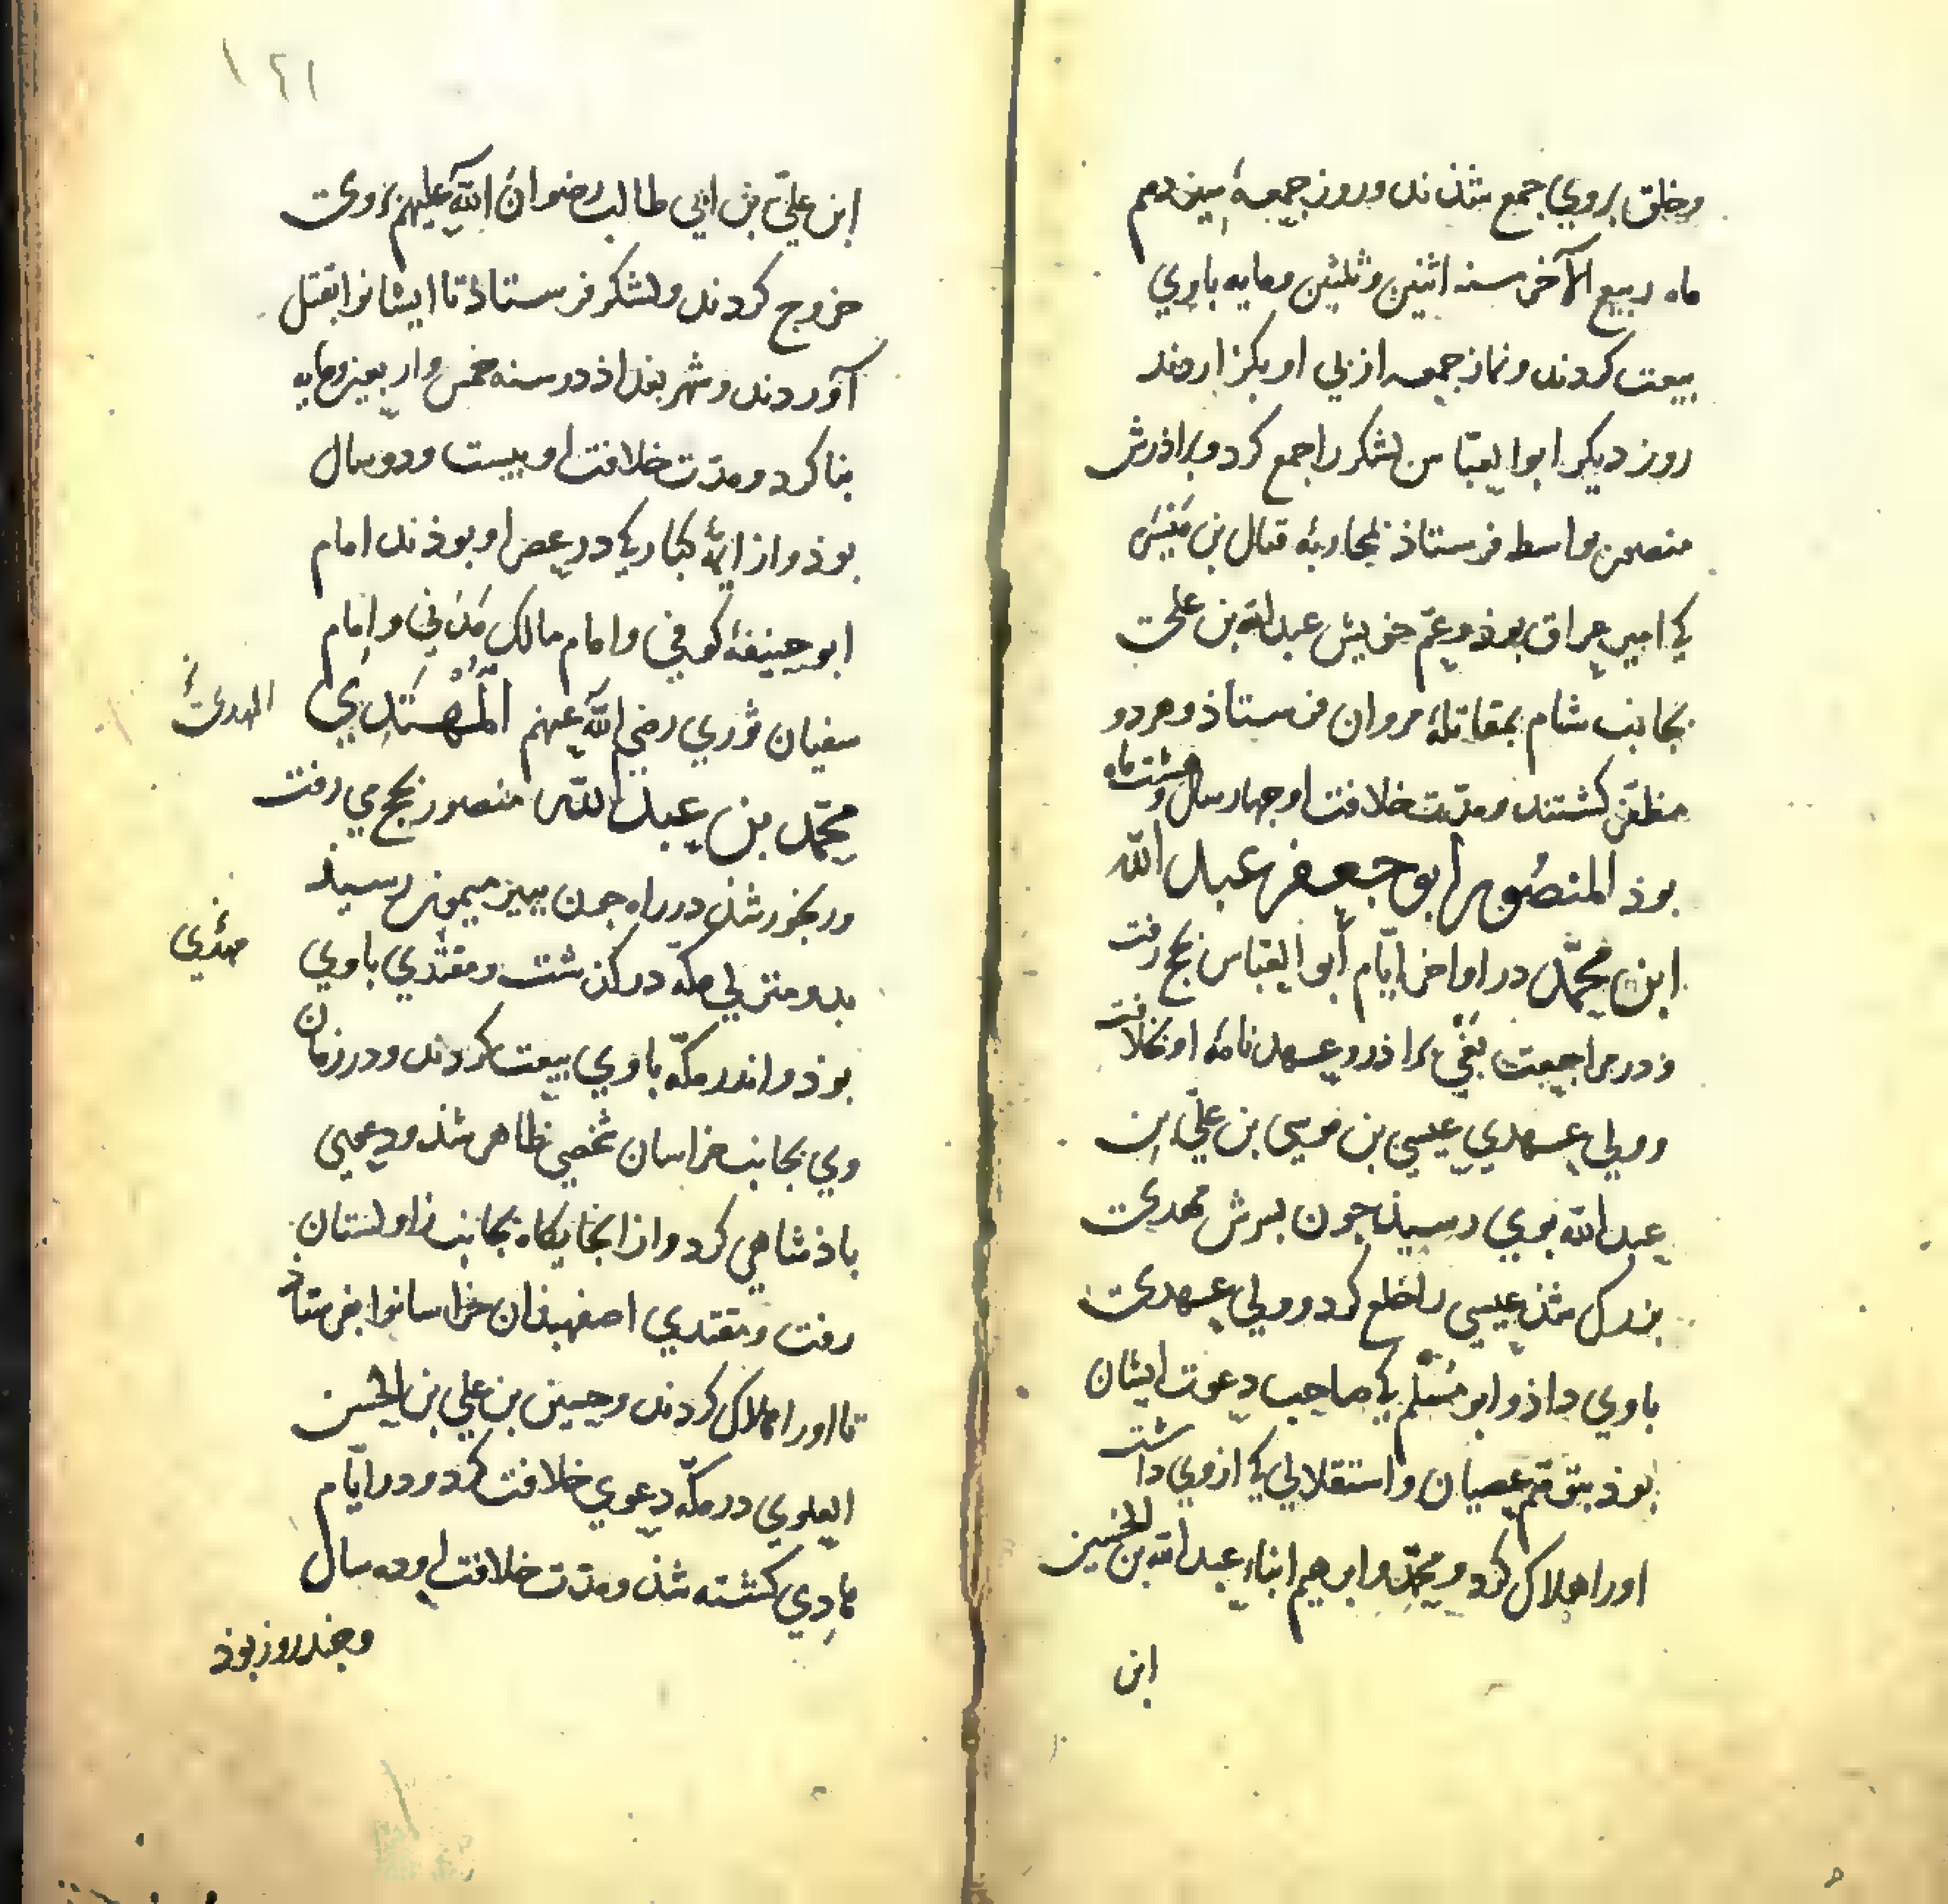 وخلق بروي جمع شذند وروز جمعه سیزدهم
ماه ربیع الآخر سنه اثنین وثلثین ومایه باوي
بیعت کردند ونماز جمعه از پی او بکزاردند
روز دیکر ابوالعبّاس لشکر را جمع کرد وبراذرش
منصور بواسط فرستاذ بمحاربهٔ قتال بن
کي امیر عراق بوذ وعمّ خویش عبدالله بن علی
بجانب شام بمقاتلهٔ مروان فرستاذ وهردو
مظفّر کشتند ومدّت خلافت او جهار سال وهشت ماه
بوذ المنصور ابو جعفر عبدالله
ابن محمّد در اواخر ایّام ابوالعبّاس بحج رفت
ودر مراجعت براذر وعهدنامهٔ او بخلافت
وولي عهدي عیسی بن موسی بن علي ابن
عبدالله بوي رسیذ جون بسرش مهدی
بزرک شذ عیسی را خلع کرد وولي عهدی
باوي داذ وابو مسلم کي صاحب دعوت ایشان
بوذ بتوقّع عصیان واستقلالي کي از وي داشت
اورا هلاک کرد ومحمّد وابرهیم ابناء عبدالله بن الحسین
ابن
۱۲۱
ابن عليّ بن ابي طالب رضوان الله علیهم بروی
خروج کردند ولشکر فرستاذ تا ایشانرا بقتل
آوردند وشهر بغداذ در سنه خمس واربعین ومایه
بنا کرد ومدّت خلافت او بیست ودو سال
بوذ واز ایمّهٔ کبار کي در عصر او بوذند امام
ابو حنیفهٔ کوفي وامام مالک مدني وامام
سفیان ثوري رضي الله عنهم المهتدي
المهدی
محمّد بن عبدالله منصور بحج مي رفت
ورنجور شذ در راه جون ببیر میمون رسیذ
بدو منزلي مکّه درکذشت ومقتدي باوي
مهدي
بوذ واندر مکّه باوي بیعت کردند ودر زمان
وي بجانب خراسان شخصي ظاهر شذ ودعوی
باذشاهي کرد واز آنجایکاه بجانب زاولستان
رفت ومقتدي اصفهبذان خراسانرا بفرستاذ
تا اورا هلاک کردند وحسین بن علي بن الحسن
العلوي در مکّه دعوي خلافت کرد ودر ایّام
هادي کشته شذ ومدّت خلافت او ده سال
وجند روز بوذ